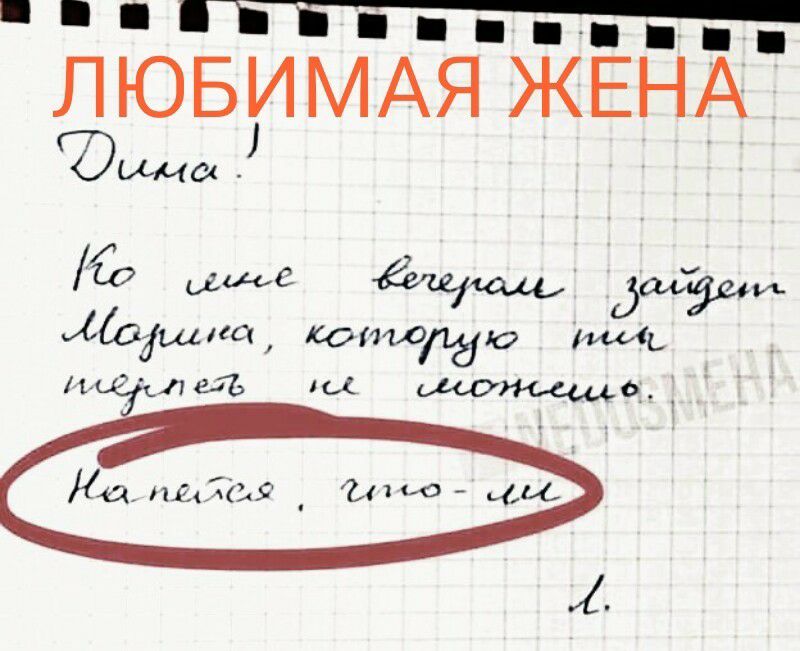 ЛЮБИМАЯ ЖЕНА
Дима!
Ко мне вечером зайдет
Марина, которую ты
терпеть не можешь.
NEDOSMEHA
Напейся, что-ли
Л.